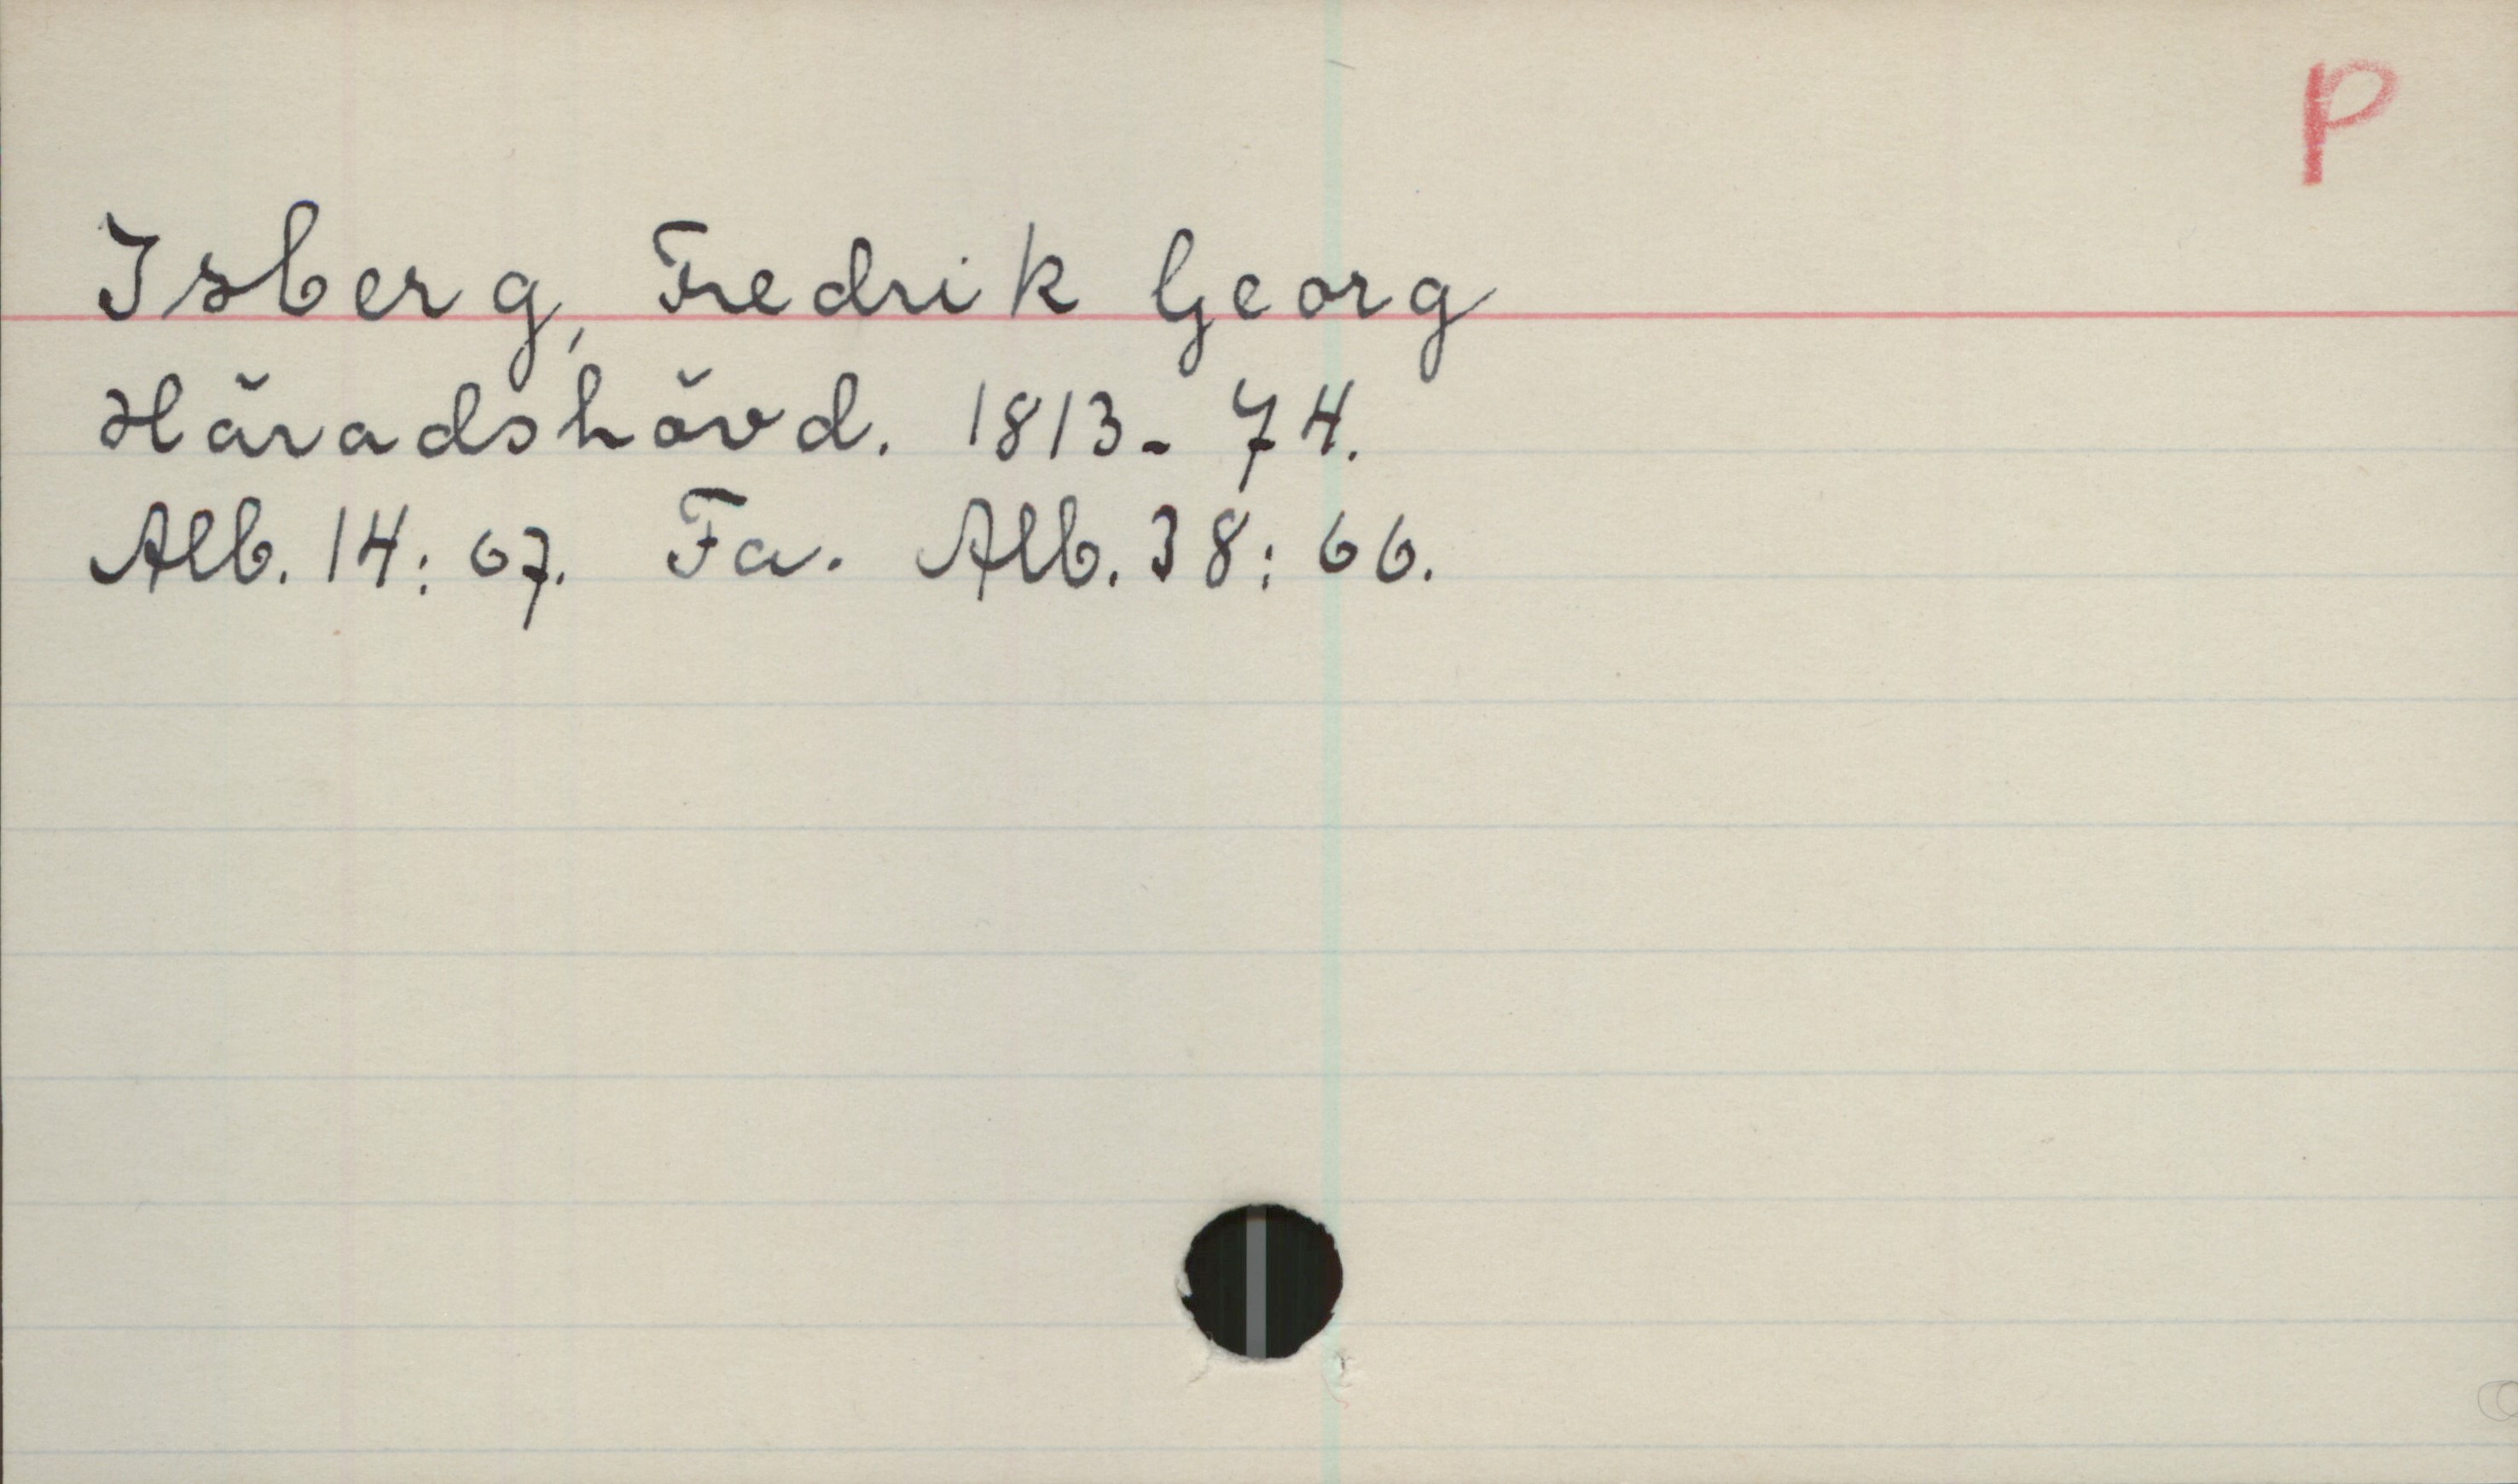 P
Isberg, Fredrik Georg
Häradshövd. 1813-74.
Alb. 14: 67. Fa. Alb. 38: 66.